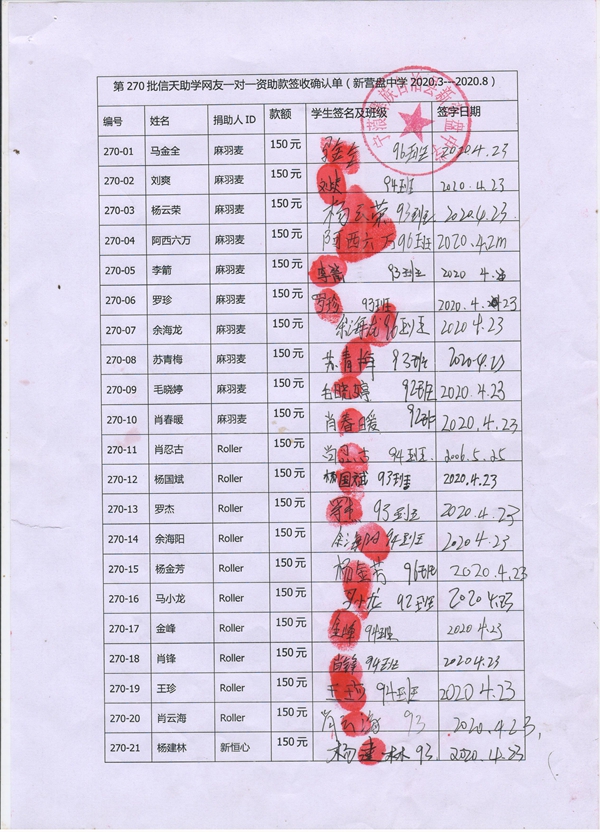 第 270 批信天助学网友一对一资助款签收确认单（新营盘中学 2020.3---2020.8）
编号 姓名 捐助人 ID 款额 学生签名及班级 签字日期
270-01 马金全 麻羽麦 150 元 96班 2020.4.23
270-02 刘爽 麻羽麦 150 元 刘爽 94班 2020.4.23
270-03 杨云荣 麻羽麦 150 元 杨云荣 93班 2020.4.23
270-04 阿西六万 麻羽麦 150 元 阿西六万 96班
270-05 李箭 麻羽麦 150 元 李箭 93班
270-06 罗珍 麻羽麦 150 元 罗珍 93班 2020.4.23
270-07 余海龙 麻羽麦 150 元 余海龙 96班 2020 4.23
270-08 苏青梅 麻羽麦 150 元 苏青梅 93班
270-09 毛晓婷 麻羽麦 150 元 毛晓婷 92班 2020.4.23
270-10 肖春暖 麻羽麦 150 元 肖春暖 92班 2020.4.23
270-11 肖忍古 Roller 150 元 94班. 2006.5.25
270-12 杨国斌 Roller 150 元 杨国斌 93班 2020.4.23
270-13 罗杰 Roller 150 元 93班 2020.4.23
270-14 余海阳 Roller 150 元 余海阳 94班 2020.4.23
270-15 杨金芳 Roller 150 元 杨金芳 96班 2020.4.23
270-16 马小龙 Roller 150 元 马小龙 92班 2020 4.23
270-17 金峰 Roller 150 元 金峰 94班 2020 4.23
270-18 肖锋 Roller 150 元 肖锋 94班 2020.4.23
270-19 王珍 Roller 150 元 王珍 94班 2020 4.23
270-20 肖云海 Roller 150 元 肖云海 93 2020.4.23,
270-21 杨建林 新恒心 150 元 杨建林 93 2020.4.23